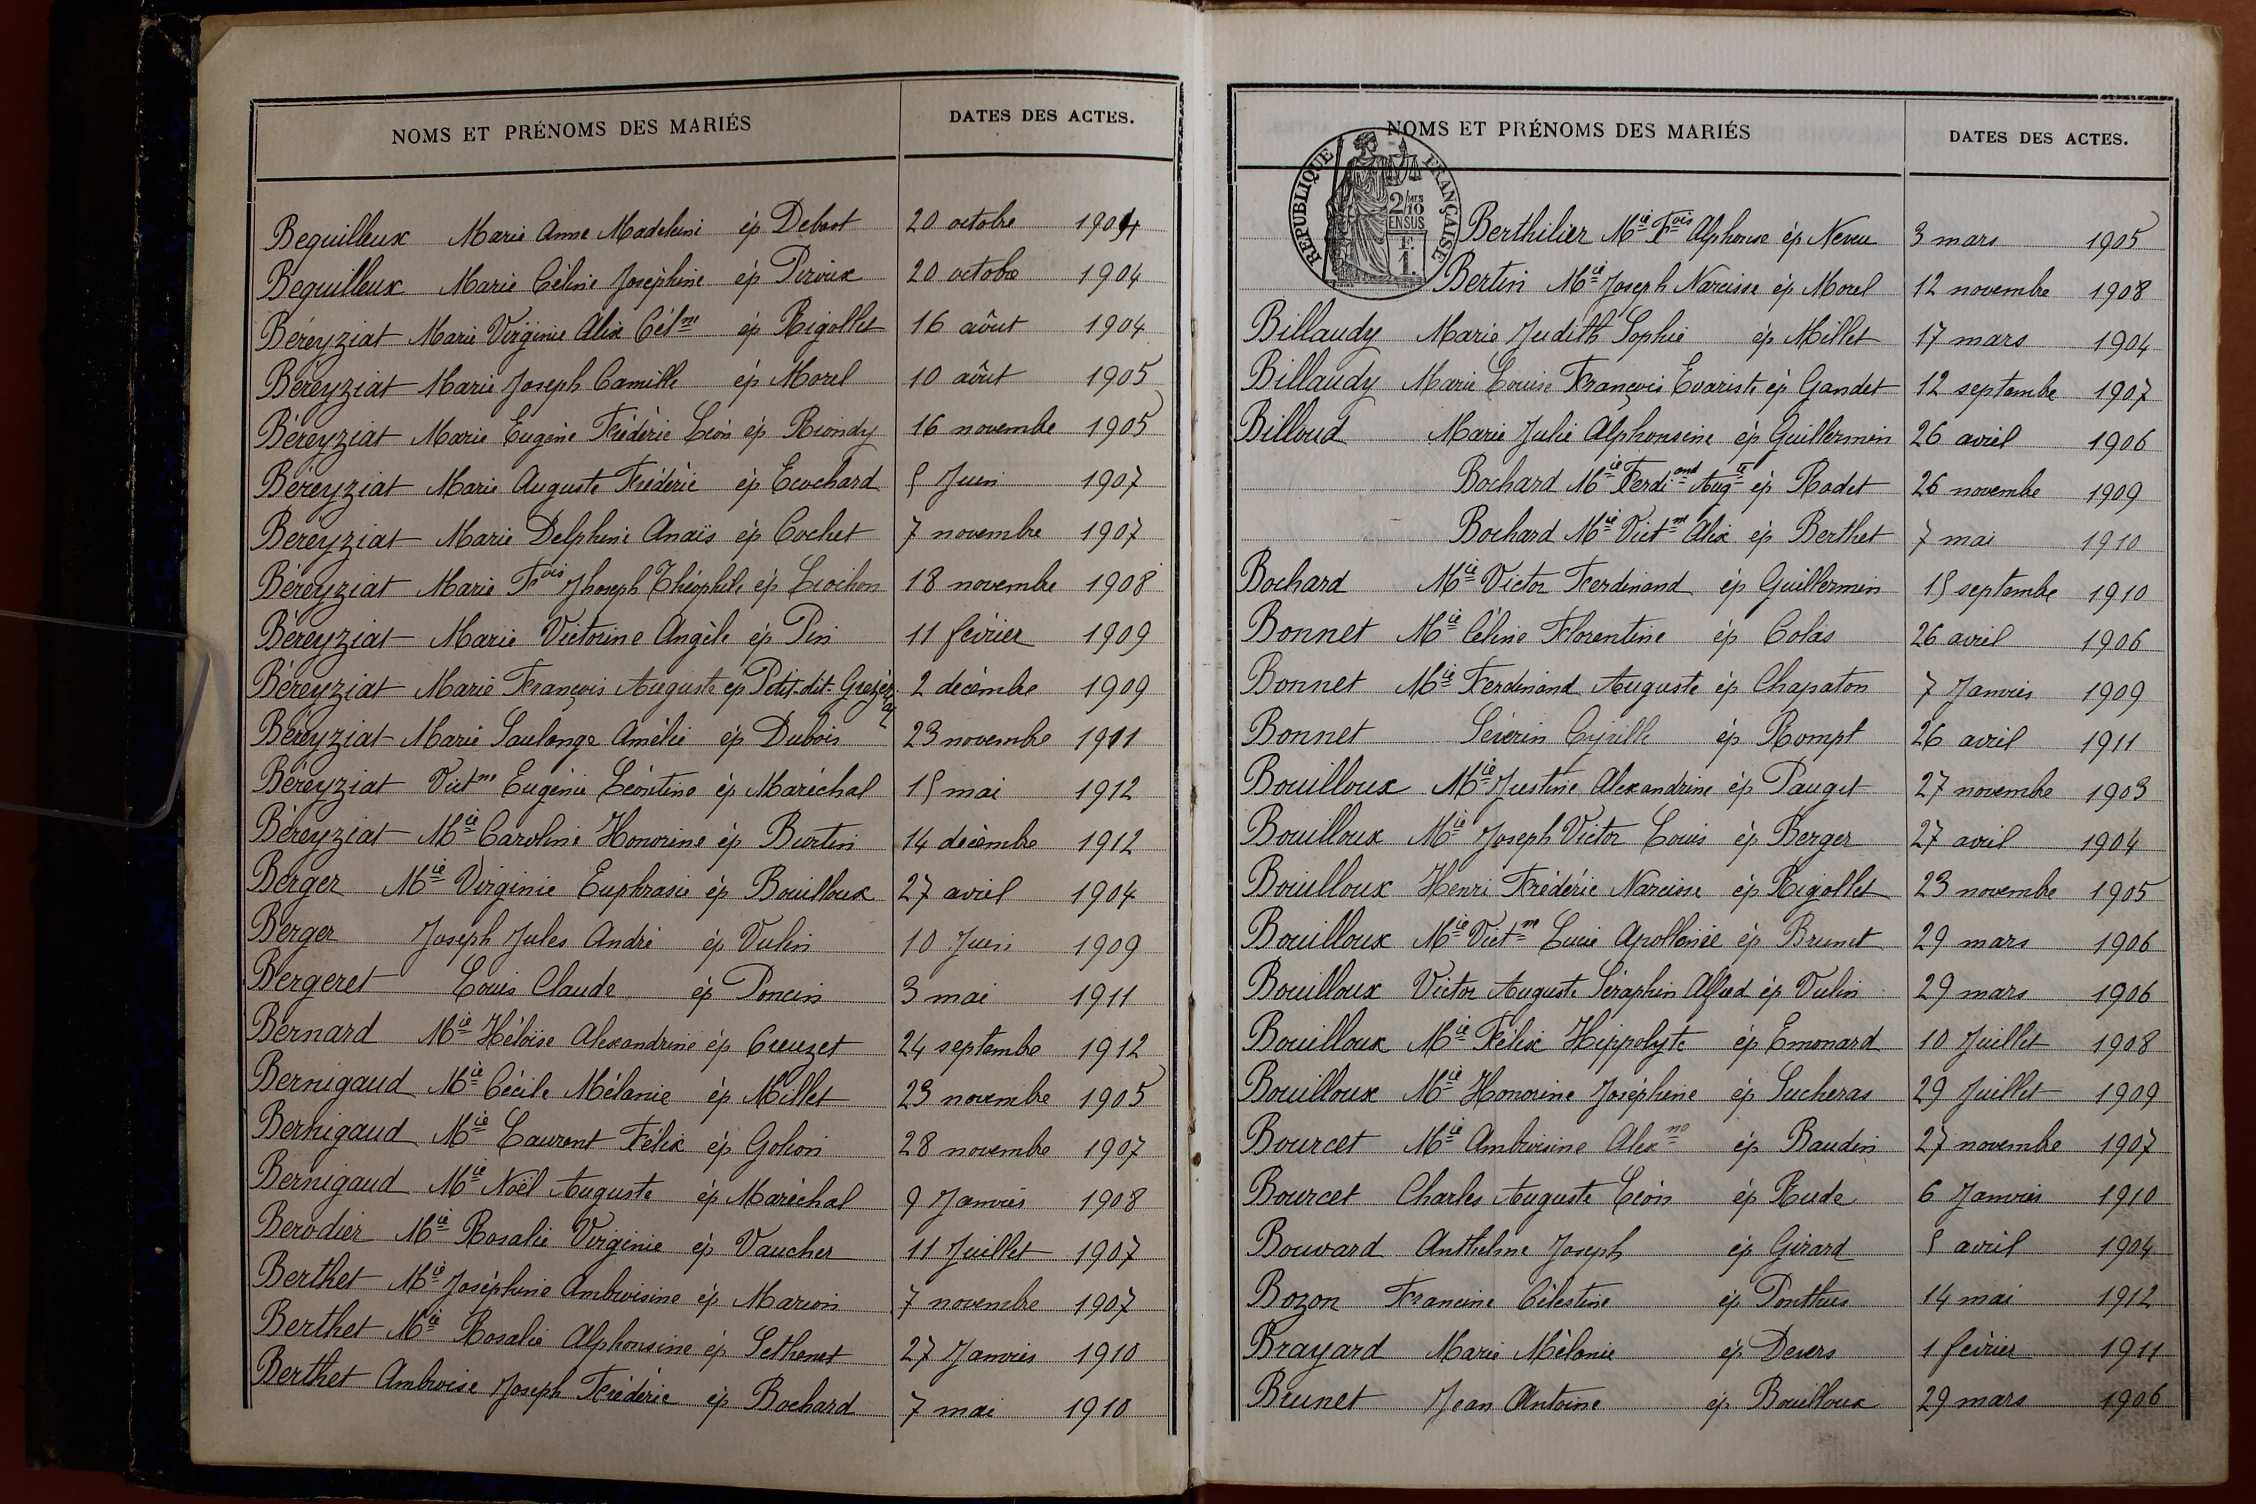 NOMS ET PRÉNOMS DES MARIÉS DATES DES ACTES.
Bequilleux Marie Anne Madeleine ép Debost 20 octobre 1904
Bequilleux Marie Céline Joséphine ép Peroux 20 octobre 1904
Béreyziat Marie Virginie Alix Cél^ne ép Rigollet 16 août 1904
Béreyziat Marie Joseph Camille ép Morel 10 août 1905
Béreyziat Marie Eugène Frédéric Léon ép Riondy 16 novembre 1905
Béreyziat Marie Auguste Frédéric ép Ecochard 5 Juin 1907
Béreyziat Marie Delphine Anaïs ép Cochet 7 novembre 1907
Béreyziat Marie F^ois Jhoseph Théophile ép Liochon 18 novembre 1908
Béreyziat Marie Victorine Angèle ép Pin 11 février 1909
Béreyziat Marie François Auguste ép Petit-dit- 2 décembre 1909
Béreyziat Marie Saulange Amélie ép Dubois 23 novembre 1911
Béreyziat Vict^ne Eugénie Léontine ép Maréchal 15 mai 1912
Béreyziat M^ie Caroline Honorine ép Burtin 14 décembre 1912
Berger M^ie Virginie Euphrasie ép Bouilloux 27 avril 1904
Berger Joseph Jules André ép Vulin 10 Juin 1909
Bergeret Louis Claude ép Poncin 3 mai 1911
Bernard M^ie Héloïse Alexandrine ép Creuzet 24 septembre 1912
Bernigaud M^ie Cécile Mélanie ép Millet 23 novembre 1905
Bernigaud M^ie Laurent Félix ép Golion 28 novembre 1907
Bernigaud M^ie Noël Auguste ép Maréchal 9 Janvier 1908
Berodier M^ie Rosalie Virginie ép Vaucher 11 Juillet 1907
Berthet M^ie Joséphine Ambroisine ép Marion 7 novembre 1907
Berthet M^ie Rosalie Alphonsine ép Sethenet 27 Janvier 1910
Berthet Ambroise Joseph Frédéric ép Bochard 7 mai 1910
NOMS ET PRÉNOMS DES MARIÉS DATES DES ACTES.
REPUBLIQUE FRANÇAISE
2/10
EN SUS
F.
1.
Berthilier M^ie F^ois Alphonse ép Neveu 3 mars 1905
Bertin M^ie Joseph Narcisse ép Morel 12 novembre 1908
Billaudy Marie Judith Sophie ép Millet 17 mars 1904
Billaudy Marie Louise François Evariste ép Gandet 12 septembre 1907
Billoud Marie Julie Alphonsine ép Guillermin 26 avril 1906
Bochard M^ie Ferdi^and Aug^te ép Rodet 26 novembre 1909
Bochard M^ie Vict^ne Alix ép Berthet 7 mai 1910
Bochard M^ie Victor Ferdinand ép Guillermin 15 septembre 1910
Bonnet M^ie Céline Florentine ép Colas 26 avril 1906
Bonnet M^ie Ferdinand Auguste ép Chapaton 7 Janvier 1909
Bonnet Séverin Cyrille ép Rompt 26 avril 1911
Bouilloux M^ie Justine Alexandrine ép Pauget 27 novembre 1903
Bouilloux M^ie Joseph Victor Louis ép Berger 27 avril 1904
Bouilloux Henri Frédéric Narcisse ép Rigollet 23 novembre 1905
Bouilloux M^ie Vict^ne Lucie Apollonie ép Brunet 29 mars 1906
Bouilloux Victor Auguste Séraphin Alfred ép Vulin 29 mars 1906
Bouilloux M^ie Félix Hippolyte ép Emonard 10 Juillet 1908
Bouilloux M^ie Honorine Joséphine ép Sucheras 29 Juillet 1909
Bourcet M^ie Ambroisine Alex^ne ép Baudin 27 novembre 1907
Bourcet Charles Auguste Léon ép Rude 6 Janvier 1910
Bouvard Anthelme Joseph ép Girard 5 avril 1904
Bozon Francine Célestine ép Ponthus 14 mai 1912
Brayard Marie Mélanie ép Devers 1 février 1911
Brunet Jean Antoine ép Bouilloux 29 mars 1906